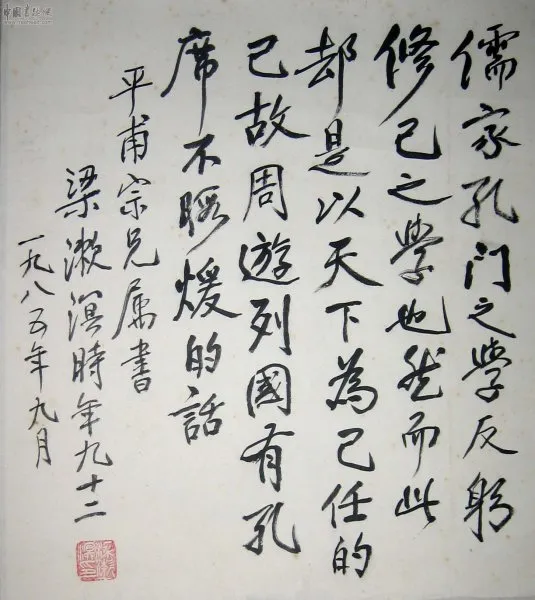 儒家孔门之學反躬
修己之學也然而此
却是以天下為己任的
已故周遊列國有孔
席不暇煖的話
平甫宗兄属書
梁漱溟時年九十二
一九八五年九月